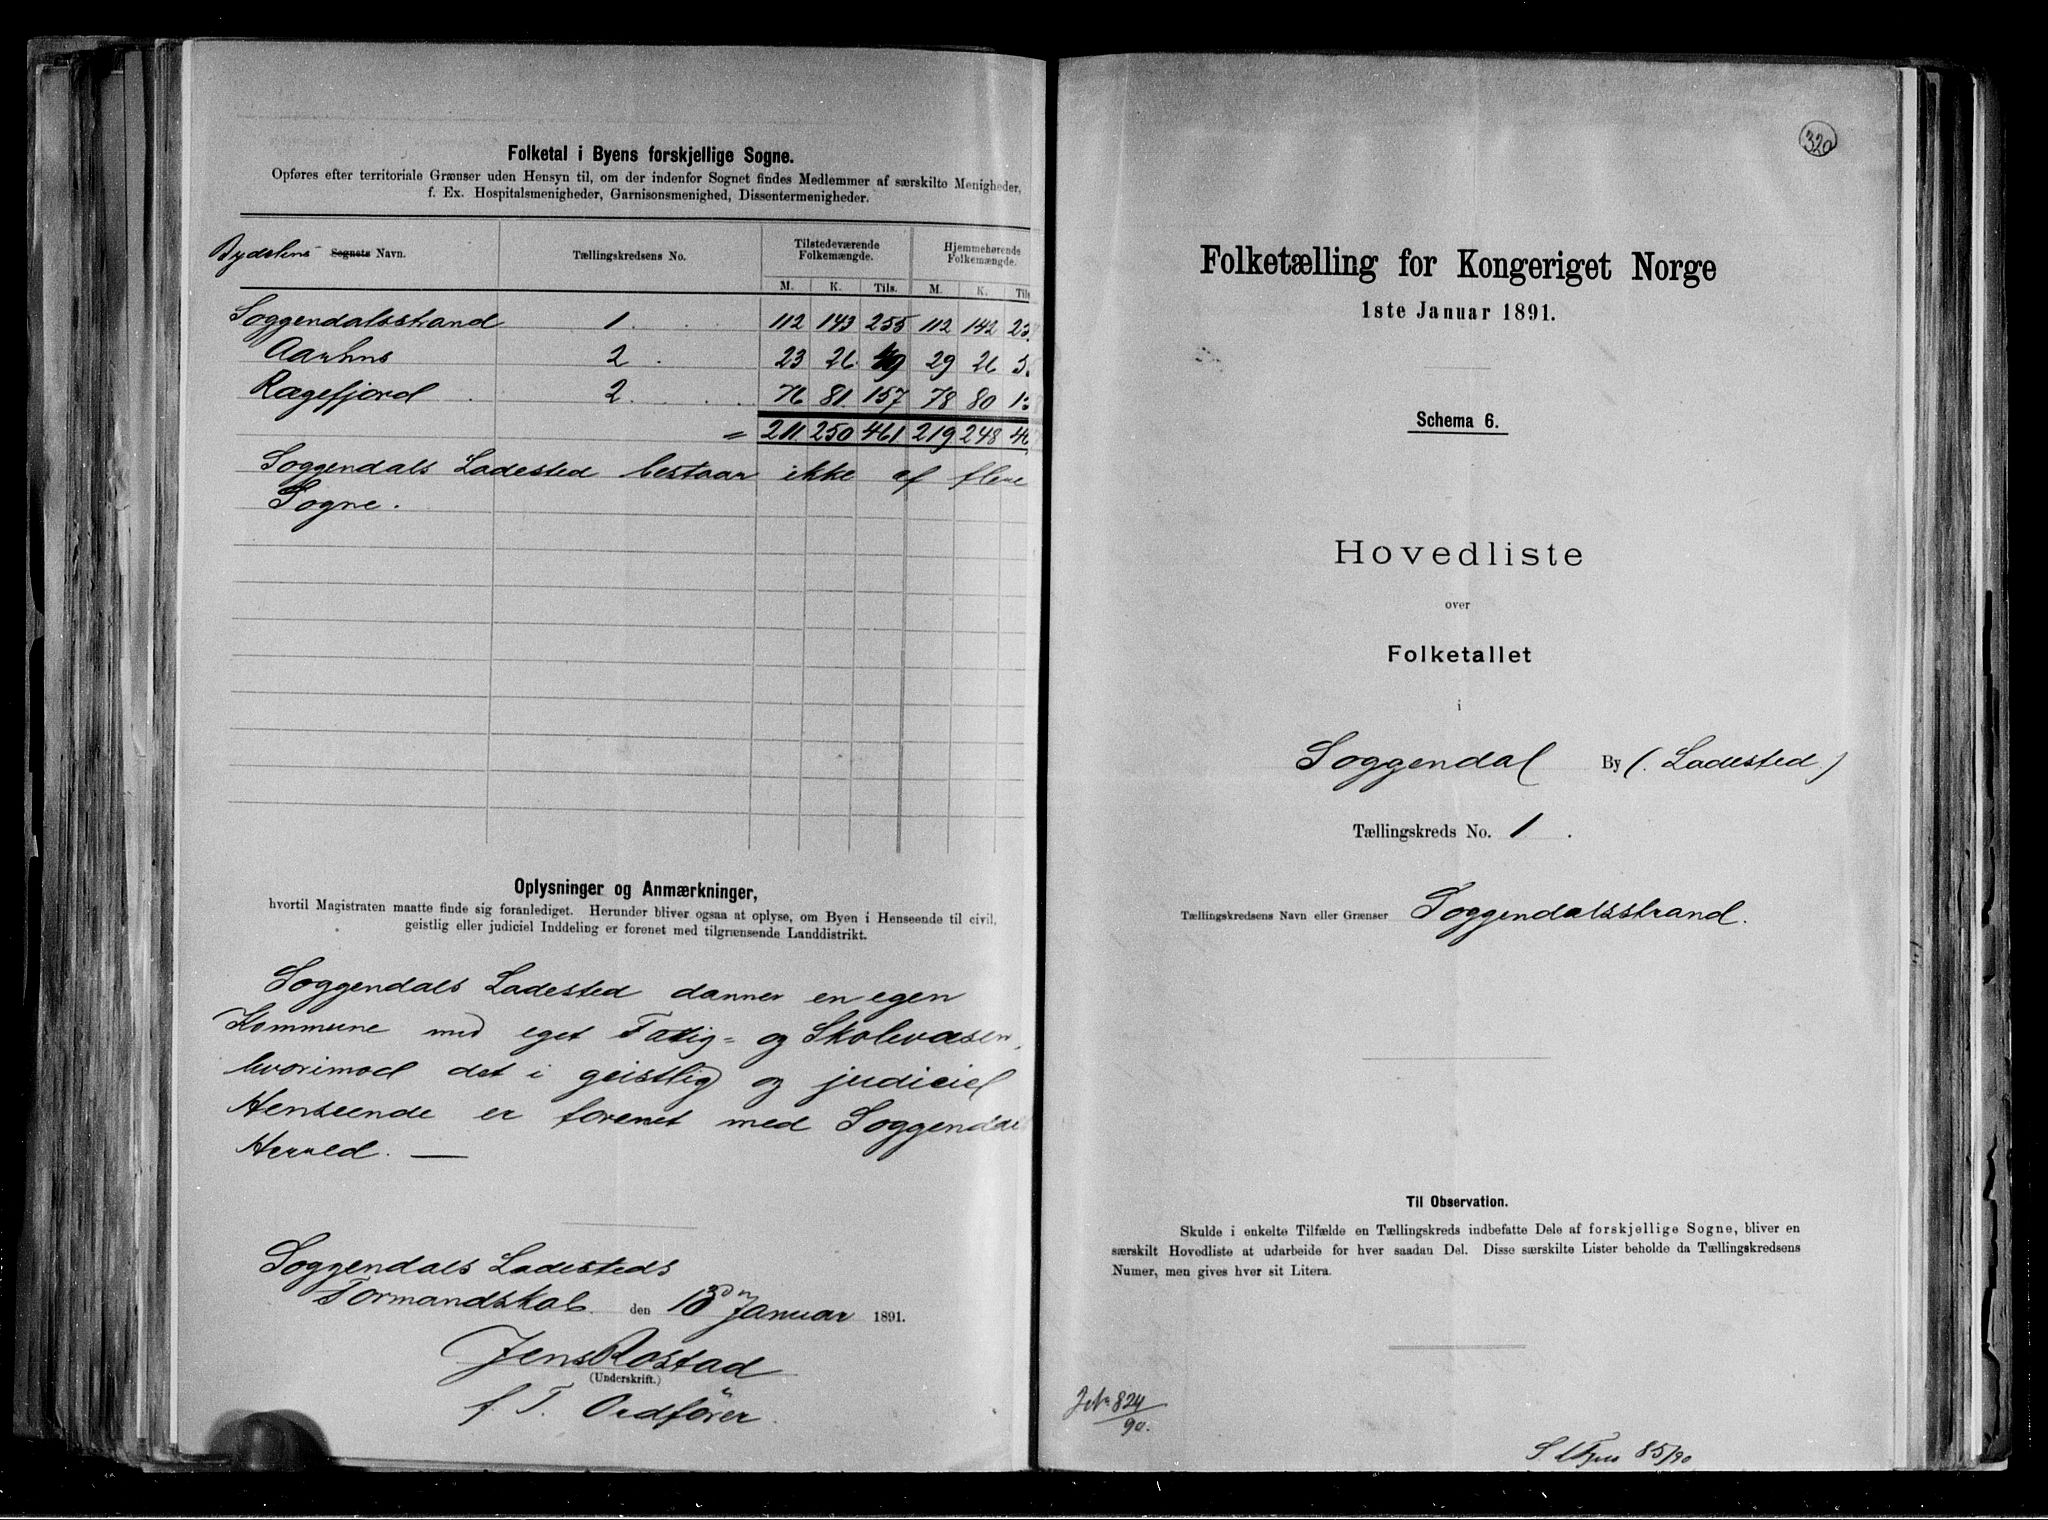 Folketal i Byens forskjellige Sogne.
Opføres efter territoriale Grænser uden Hensyn til, om der indenfor Sognet findes Medlemmer af særskilte Menigheder,
f. Ex. Hospitalsmenigheder, Garnisonsmenighed, Dissentermenigheder.
Bydelens Sognets Navn. Tællingskredsens No. Tilstedeværende Folkemængde. Hjemmehørende Folkemængde.
M. K. Tils. M. K. Tils
Soggendalsstrand 1. 112 143 255 112 142
Aarhus 2. 23 26 49 29 26
Rægefjord 2. 76 81 157 78 80
= 211 250 461 219 248
Soggendals Ladested bestaar ikke af flere
Sogne.
Oplysninger og Anmærkninger,
hvortil Magistraten maatte finde sig foranlediget. Herunder bliver ogsaa at oplyse, om Byen i Henseende til civil,
geistlig eller judiciel Inddeling er forenet med tilgrænsende Landdistrikt.
Soggendals Ladested danner en egen
Kommune med eget Fattig= og Skolevæsen,
hvorimod det i geistlig og judiciel
Henseende er forenet med Soggendals
Herred. —
Soggendals Ladesteds
Formandskab. den Januar 1891.
Jens Rostad
(Underskrift.)
f. T. Ordfører.
320
Folketælling for Kongeriget Norge
1ste Januar 1891.
Schema 6.
Hovedliste
over
Folketallet
i
Soggendal By (Ladested.)
Tællingskreds No. 1.
Tællingskredsens Navn eller Grænser Soggendalsstrand.
Til Observation.
Skulde i enkelte Tilfælde en Tællingskreds indbefatte Dele af forskjellige Sogne, bliver en
særskilt Hovedliste at udarbeide for hver saadan Del. Disse særskilte Lister beholde da Tællingskredsens
Numer, men gives hver sit Litera.
J No 824/90.
85/90